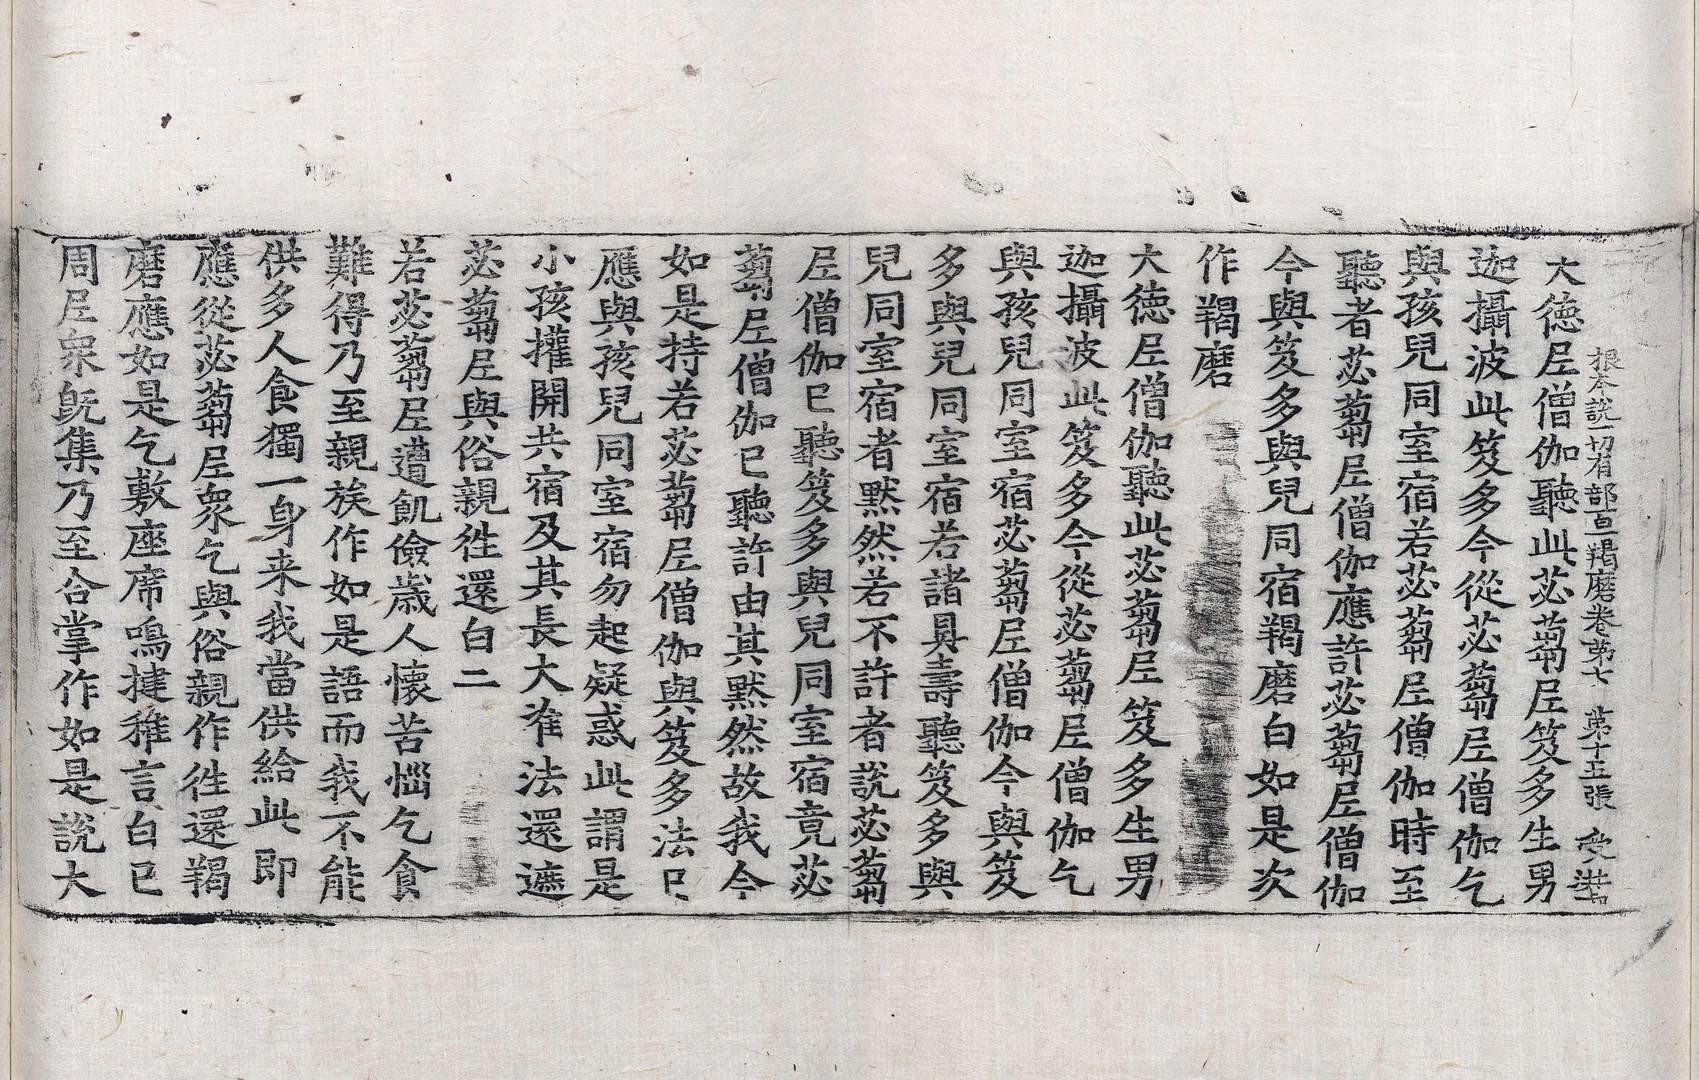 根本說一切有部百一羯磨卷第七　第十五張　受
大德尼僧伽聽此苾蒭尼笈多生男
迦攝波此笈多今從苾蒭尼僧伽乞
與孩兒同室宿若苾蒭尼僧伽時至
聽者苾蒭尼僧伽應許苾蒭尼僧伽
今與笈多與兒同宿羯磨白如是次
作羯磨
大德尼僧伽聽此苾蒭尼笈多生男
迦攝波此笈多今從苾蒭尼僧伽乞
與孩兒同室宿苾蒭尼僧伽今與笈
多與兒同室宿若諸具壽聽笈多與
兒同室宿者默然若不許者說苾蒭
尼僧伽已聽笈多與兒同室宿竟苾
蒭尼僧伽已聽許由其默然故我今
如是持若苾蒭尼僧伽與笈多法已
應與孩兒同室宿勿起疑惑此謂是
小孩權開共宿及其長大准法還遮
苾蒭尼與俗親徃還白二
若苾蒭尼遭飢儉歲人懷苦惱乞食
難得乃至親族作如是語而我不能
供多人食獨一身来我當供給此即
應從苾蒭尼衆乞與俗親作徃還羯
磨應如是乞敷座席鳴揵稚言白已
周尼衆旣集乃至合掌作如是說大